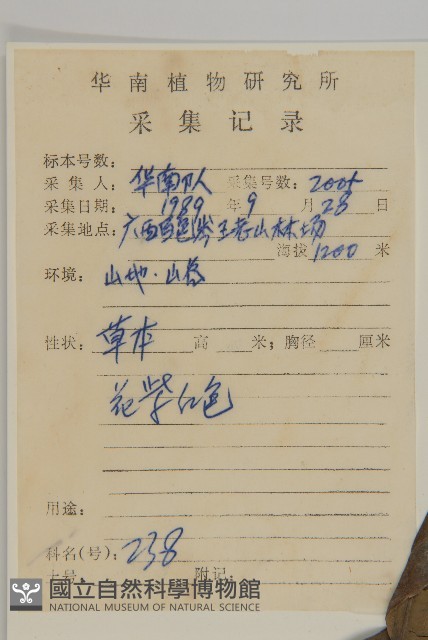 华南植物研究所
采集记录
标本号数：
采集人：华南队 采集号数：2005
采集日期：1989年9月28日
采集地点：广西百色岑王老山林场
海拔1200米
环境：山地·山谷
性状：草本 高 米；胸径 厘米
花紫红色
用途：
科名(号)：238
土号 附记
國立自然科學博物館
NATIONAL MUSEUM OF NATURAL SCIENCE